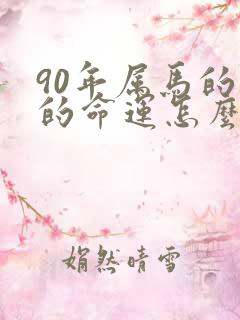 90年属马的
的命运怎麼
娟然晴雪